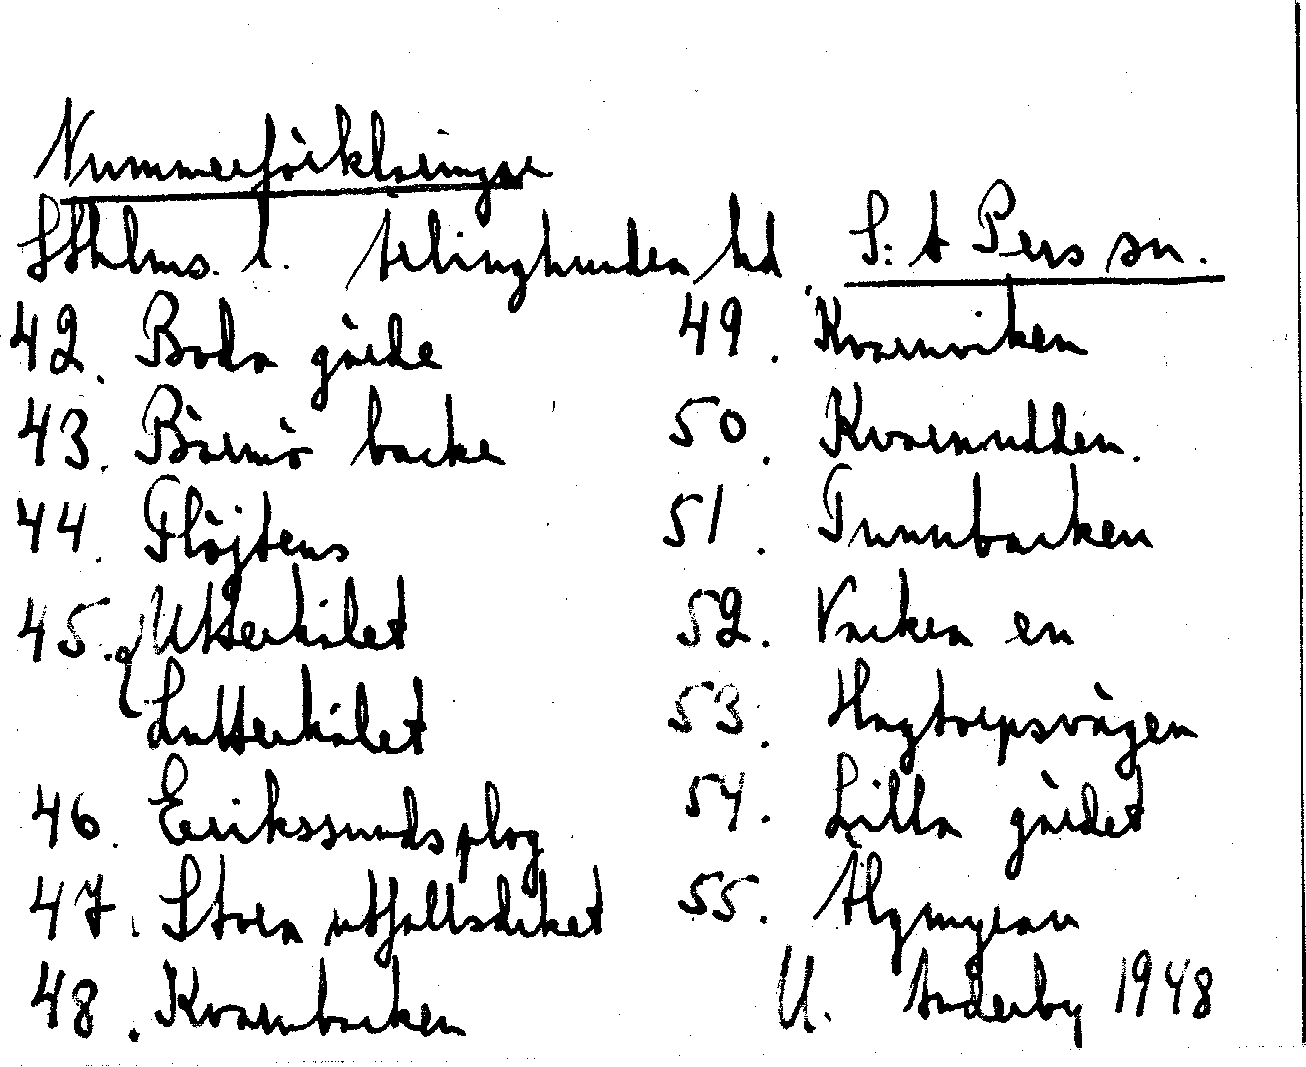 Nummerförklaringar
Sthlms. l. Ärlinghundra hd S:t Pers sn.
42. Boda gärde
43. Björnö backe
44. Flöjtens
45. Utterhålet
Lutterhålet
46. Erikssunds plog
47. Stora utfallsdiket
48. Kvarnbacken
49. Kvarnviken
50. Kvarnudden.
51. Tunnbacken
52. Vackra en
53. Hagtorpsvägen
54. Lilla gärdet
55. Älgmyran
U. Söderby 1948